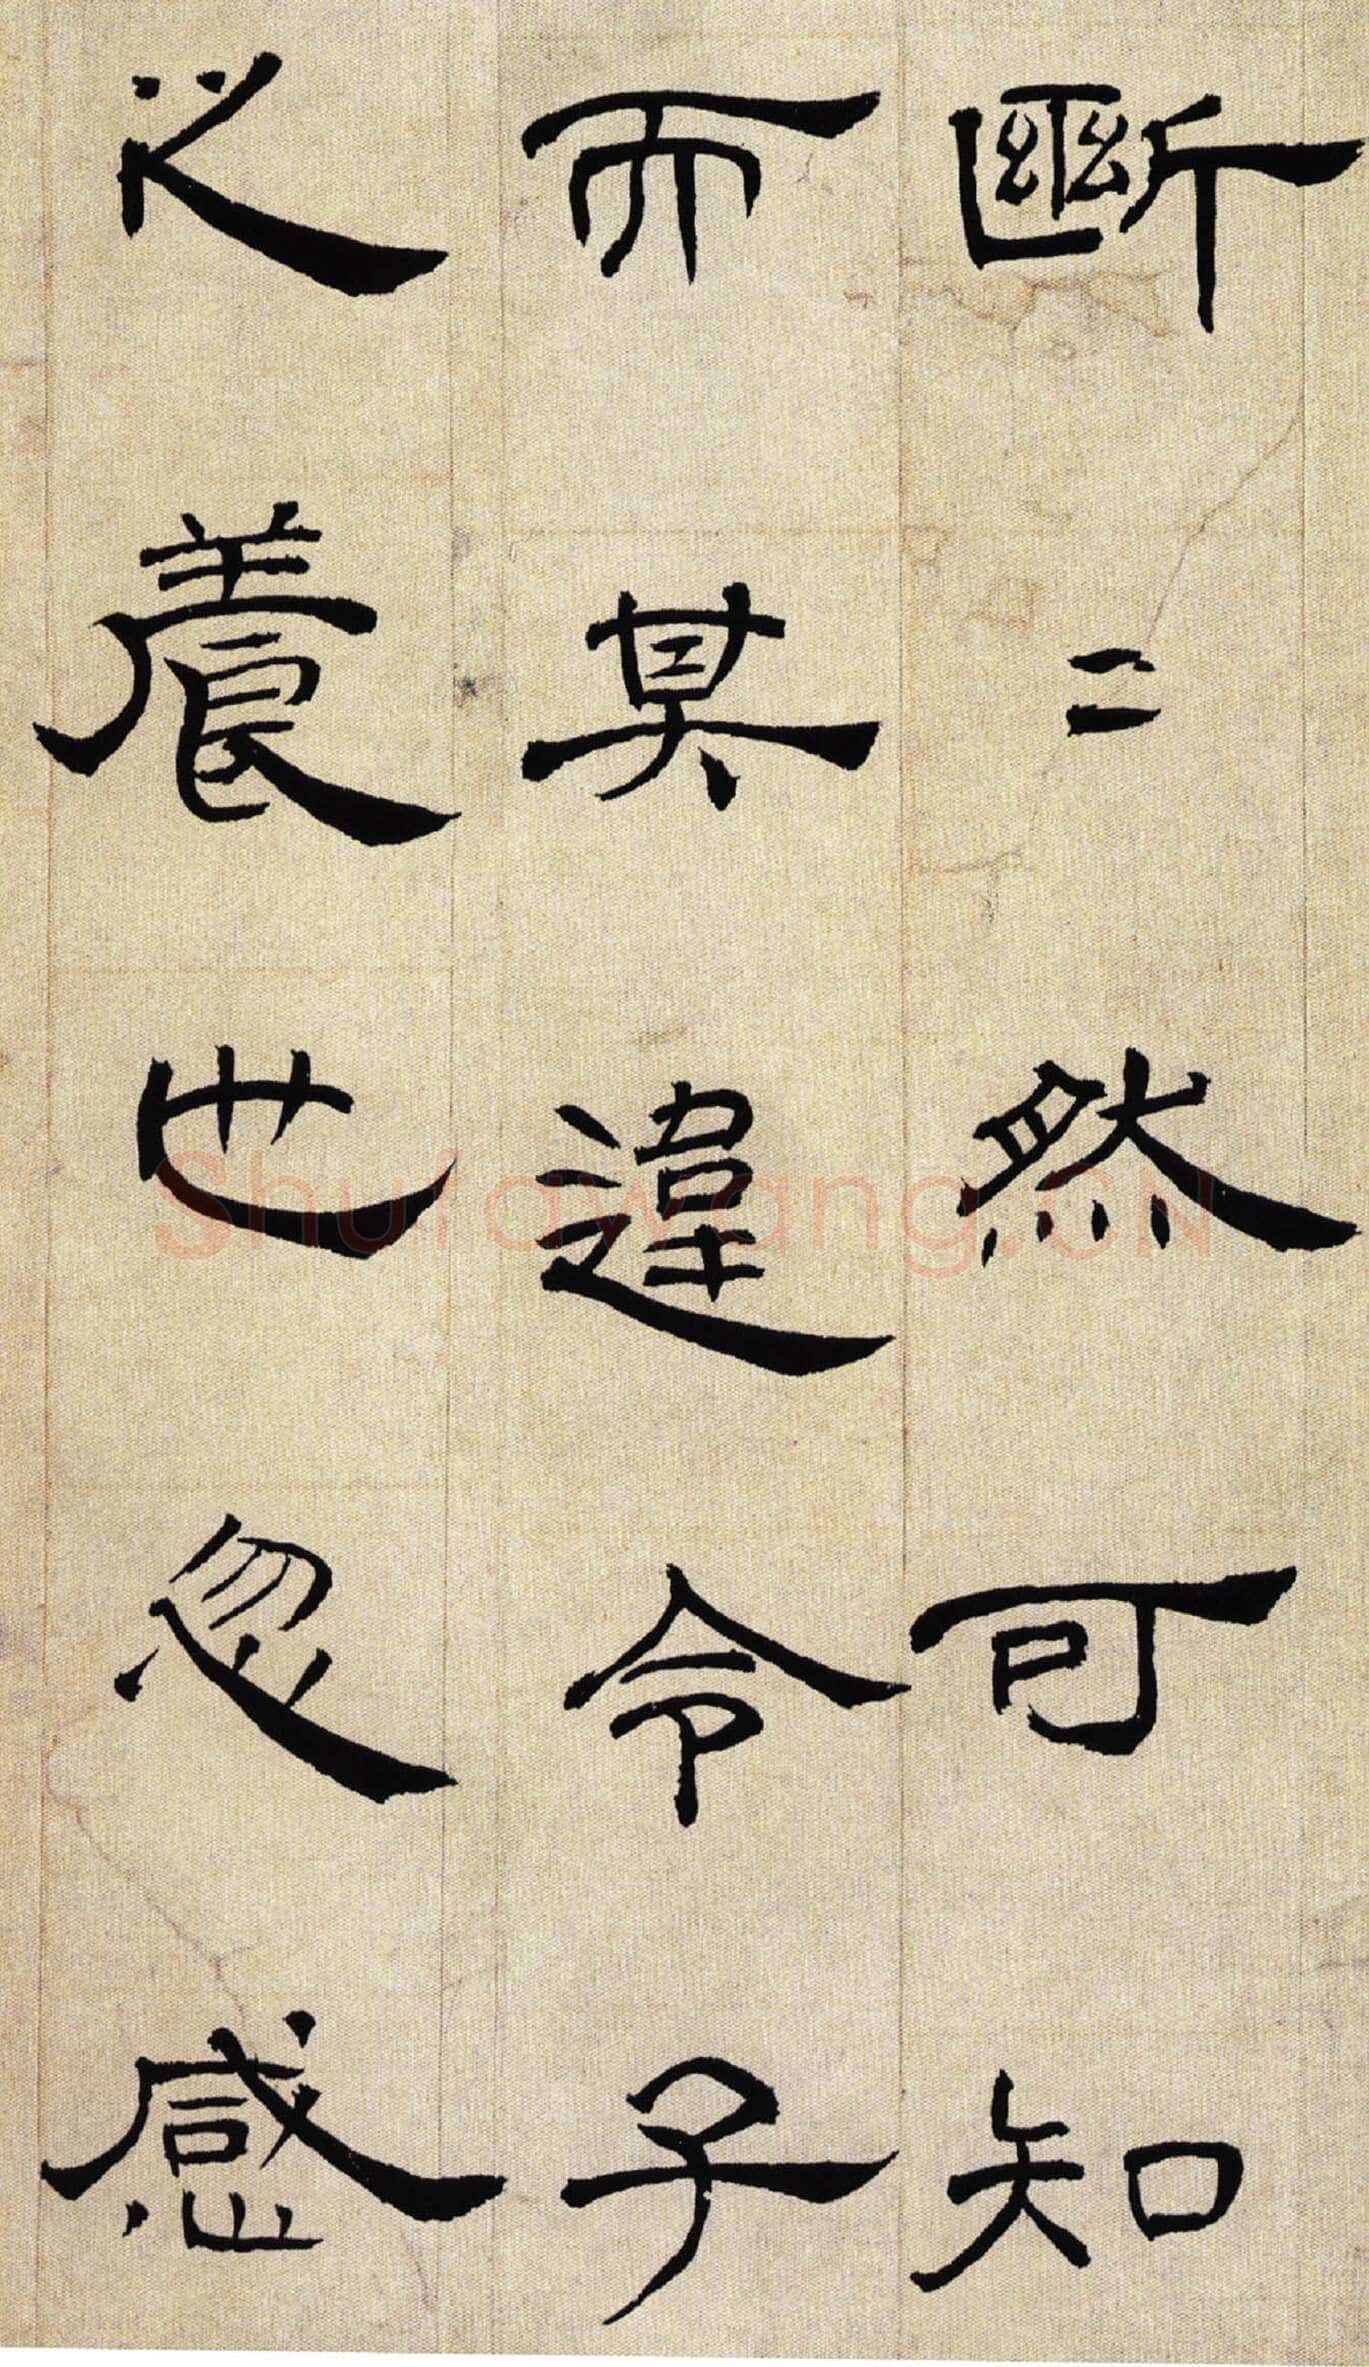 斷〻然可知
而其違令子
之養也忽感
Shufawang.CN